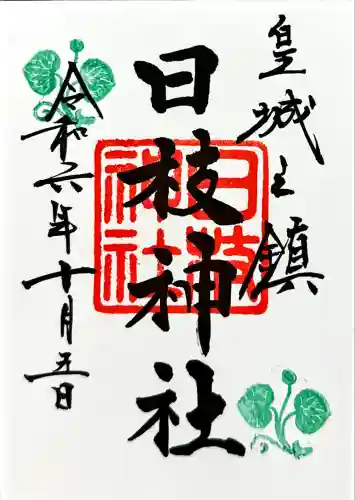 皇城之鎮
日枝神社
令和六年十月五日
日枝神社